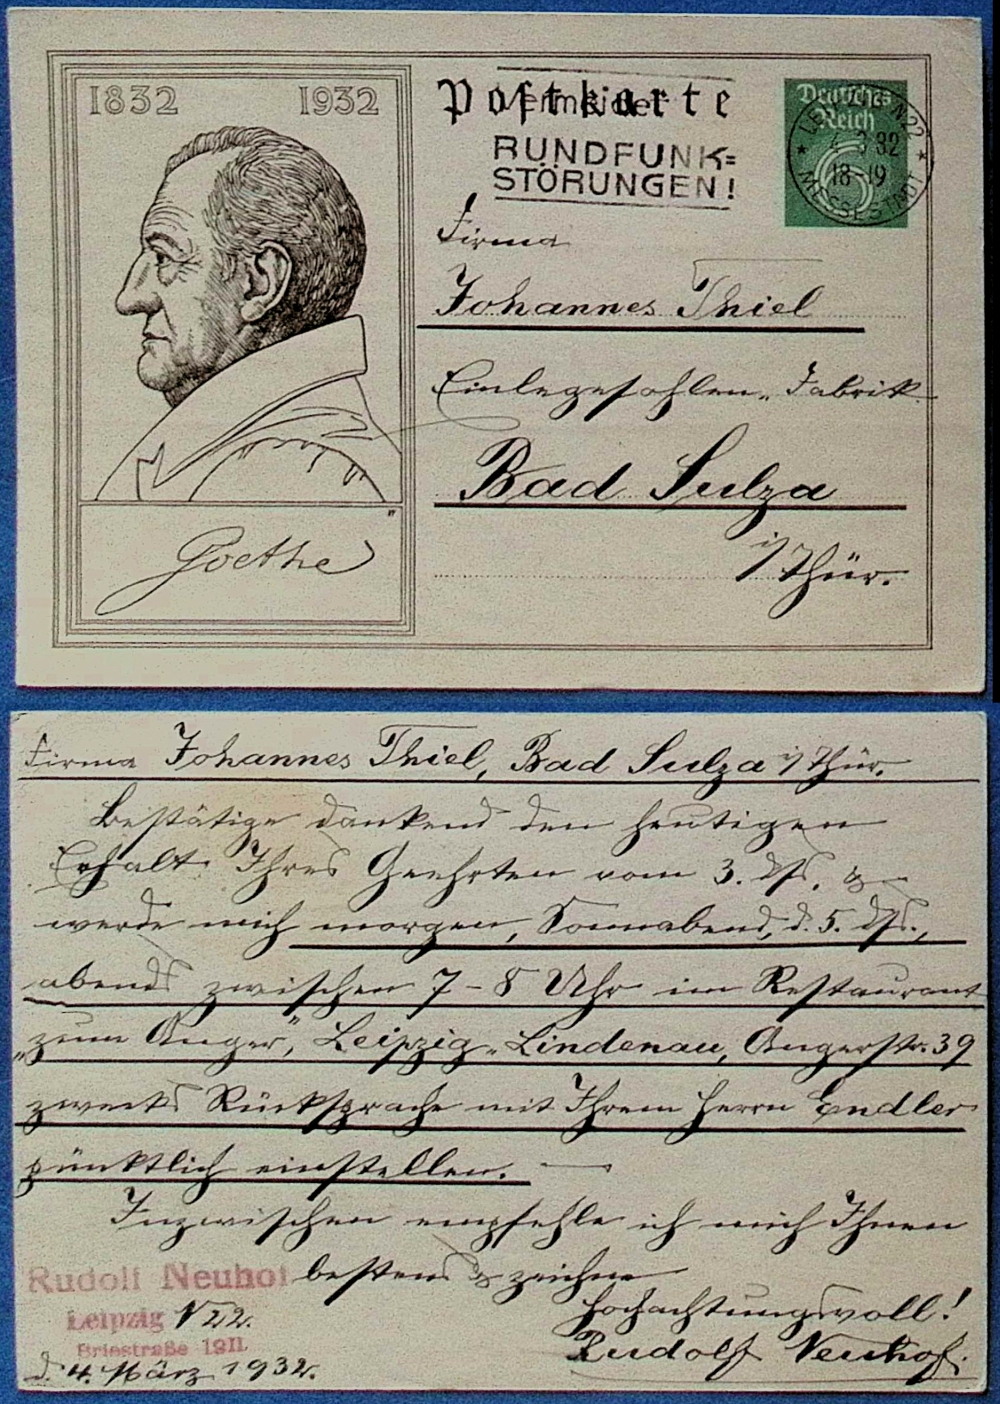 1832 1932
Postkarte
Vermeidet
RUNDFUNK=
STÖRUNGEN!
Deutsches
Reich
6
LEIPZIG N22
4 3 32
18-19
MESSESTADT
Firma
Johannes Thiel
Einlegesohlen-Fabrik
Bad Sulza
i/Thür.
Goethe
Firma Johannes Thiel, Bad Sulza i/Thür.
Bestätige dankend den heutigen
Erhalt Ihres Geehrten vom 3. ds. &
werde mich morgen, Sonnabend, d. 5. ds.,
abends zwischen 7-8 Uhr im Restaurant
„zum Anger", Leipzig-Lindenau, Angerstr. 39
zwecks Rücksprache mit Ihrem Herrn Endler
pünktlich einstellen. —
Inzwischen empfehle ich mich Ihnen
bestens & zeichne
Hochachtungsvoll!
Rudolf Neuhof.
Rudolf Neuhof
Leipzig N22.
straße 19II.
d. 4. März 1932.